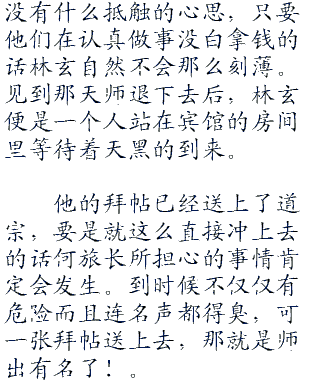 没有什么抵触的心思，只要
他们在认真做事没白拿钱的
话林玄自然不会那么刻薄。
见到那天师退下去后，林玄
便是一个人站在宾馆的房间
里等待着天黑的到来。
他的拜帖已经送上了道
宗，要是就这么直接冲上去
的话何旅长所担心的事情肯
定会发生。到时候不仅仅有
危险而且连名声都得臭，可
一张拜帖送上去，那就是师
出有名了！。